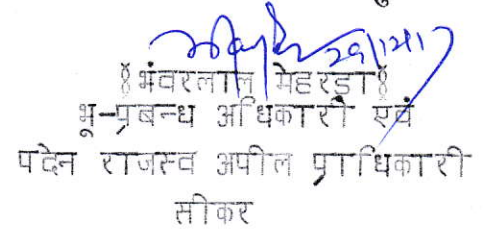 29/12/17
॥भंवरलाल मेहरडा॥
भू-प्रबन्ध अधिकारी एवं
पदेन राजस्व अपील प्राधिकारी
सीकर